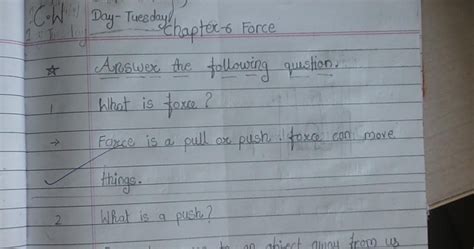 C.W Day-Tuesday
Chapter-6 Force
☆ Answer the following question.
1 What is force?
→ Force is a pull or push. force can move
things.
2 What is a push?
to an object away from us